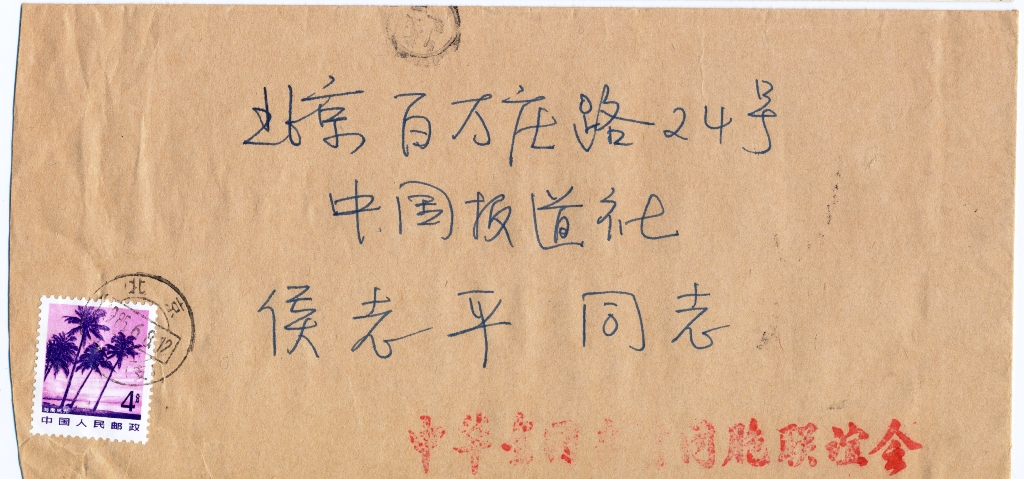 北京百万庄路24号
中国报道社
侯志平同志
北京
4分
中国人民邮政
中华全国世界语联谊会